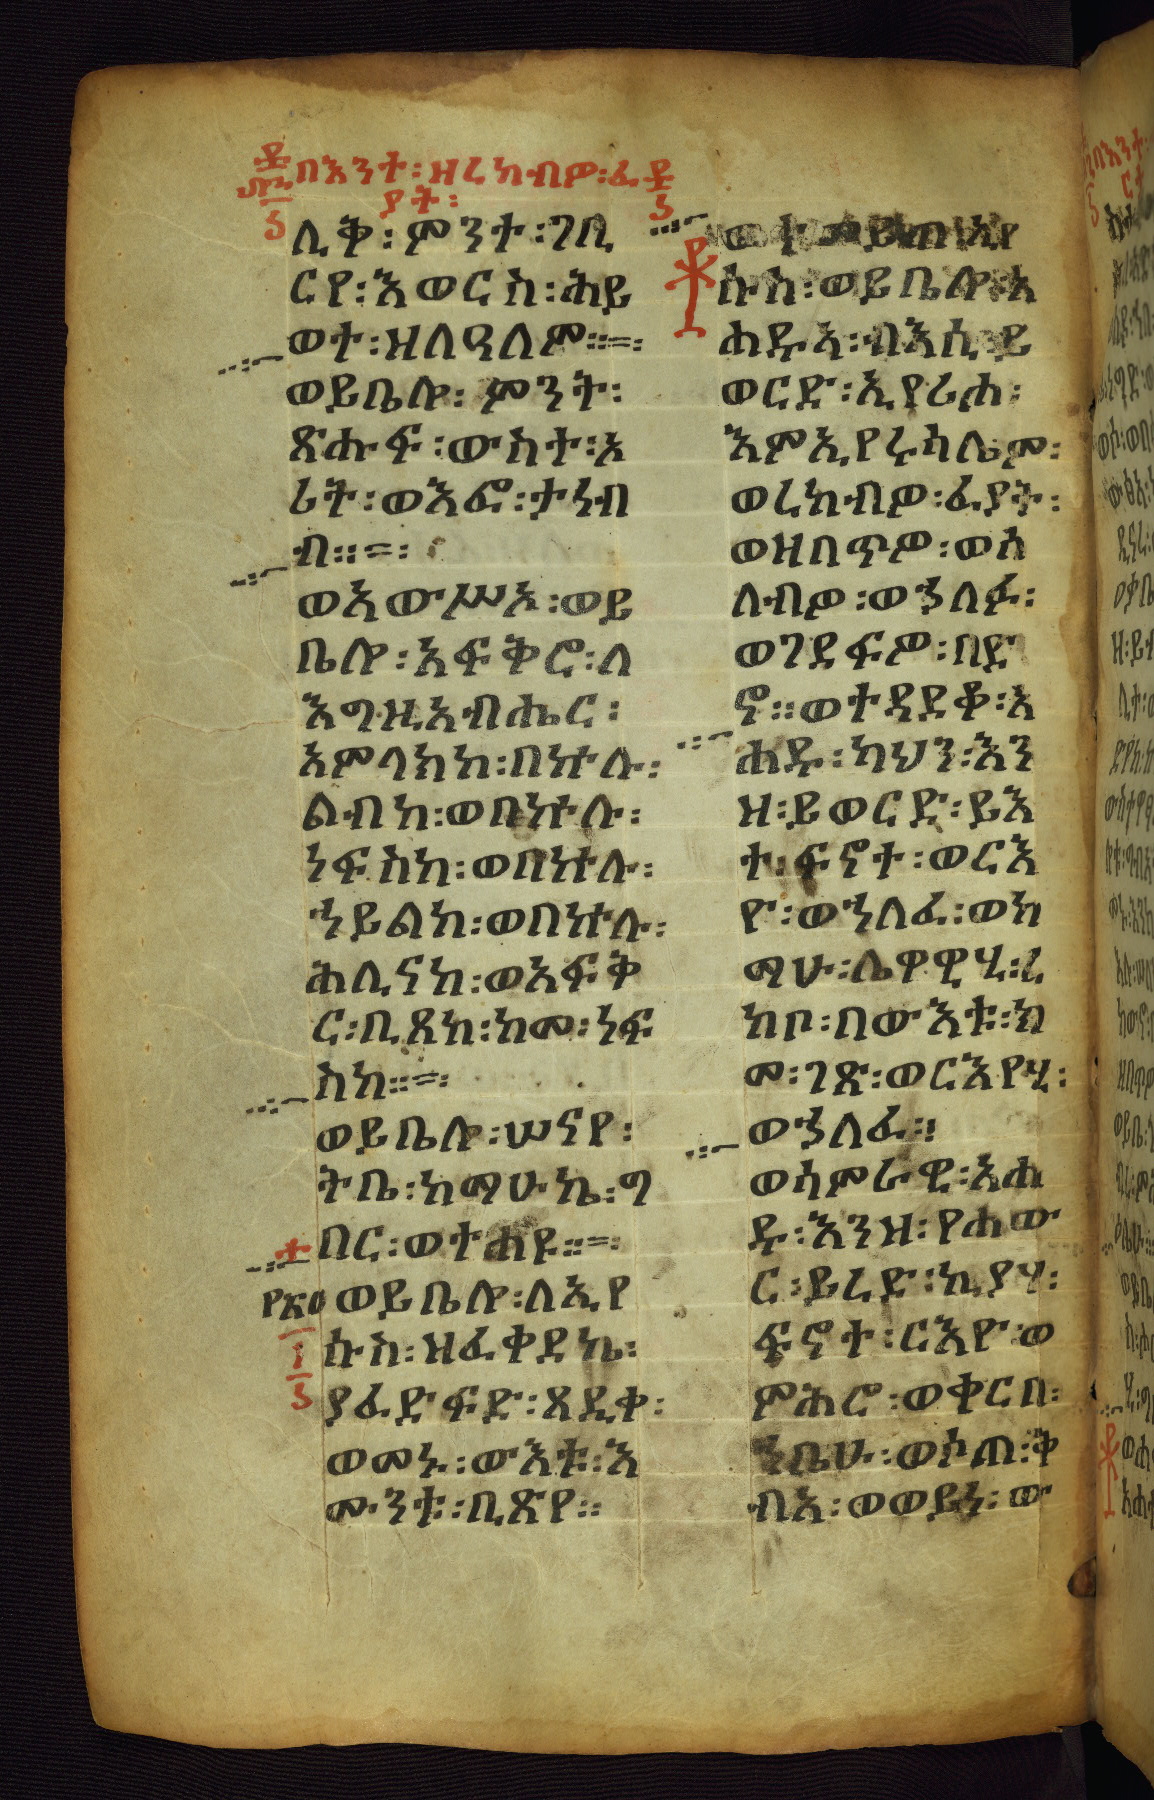 በእንተ፡ዘረከብዎ፡ፈ
ያት፡
ሊቅ፡ምንተ፡ገቢ
ርየ፡እወርስ፡ሕይ
ወተ፡ዘለዓለም።=፡
ወይቤሎ፡ምንት፡
ጽሑፍ፡ውስተ፡ኦ
ሪት፡ወእፎ፡ታነብ
ብ።=፡
ወአውሥአ፡ወይ
ቤሎ፡አፍቅሮ፡ለ
እግዚአብሔር፡
አምላክከ፡በኵሉ፡
ልብከ፡ወበኵሉ፡
ነፍስከ፡ወበኵሉ፡
ኀይልከ፡ወበኵሉ፡
ሕሊናከ፡ወአፍቅ
ር፡ቢጸከ፡ከመ፡ነፍ
ስከ።=፡
ወይቤሎ፡ሠናየ፡
ትቤ፡ከማሁኬ፡ግ
በር፡ወተሐዩ።=፡
ወይቤሎ፡ለኢየ
ሱስ፡ዘፈቀደኬ፡
ያፈድፍድ፡ጸዲቀ፡
ወመኑ፡ውእቱ፡እ
ሙንቱ፡ቢጽየ።
ወተመይጠ፡ኢየ
ሱስ፡ወይቤሎ፡አ
ሐዱ፡ብእሲ፡ይ
ወርድ፡ኢየሪሖ፡
እምኢየሩሳሌም፡
ወረከብዎ፡ፈያት፡
ወዘበጥዎ፡ወሰ
ለብዎ፡ወኀለፉ፡
ወገደፍዎ፡በድ
ኖ።ወተዳደቆ፡አ
ሐዱ፡ካህን፡እን
ዘ፡ይወርድ፡ይእ
ተ፡ፍኖተ፡ወርእ
ዮ፡ወኀለፈ፡ወከ
ማሁ፡ሌዋዊሂ፡ረ
ከቦ፡በውእቱ፡ከ
መ፡ገጽ፡ወርእየሂ፡
ወኀለፈ።
ወሳምራዊ፡አሐ
ዱ፡እንዘ፡የሐው
ር፡ይረድ፡ኪያሃ፡
ፍኖተ፡ርእዮ፡ወ
ምሕሮ፡ወቀርበ፡
ኀቤሁ፡ወሶጠ፡ቅ
ብአ፡ወወይነ፡ው